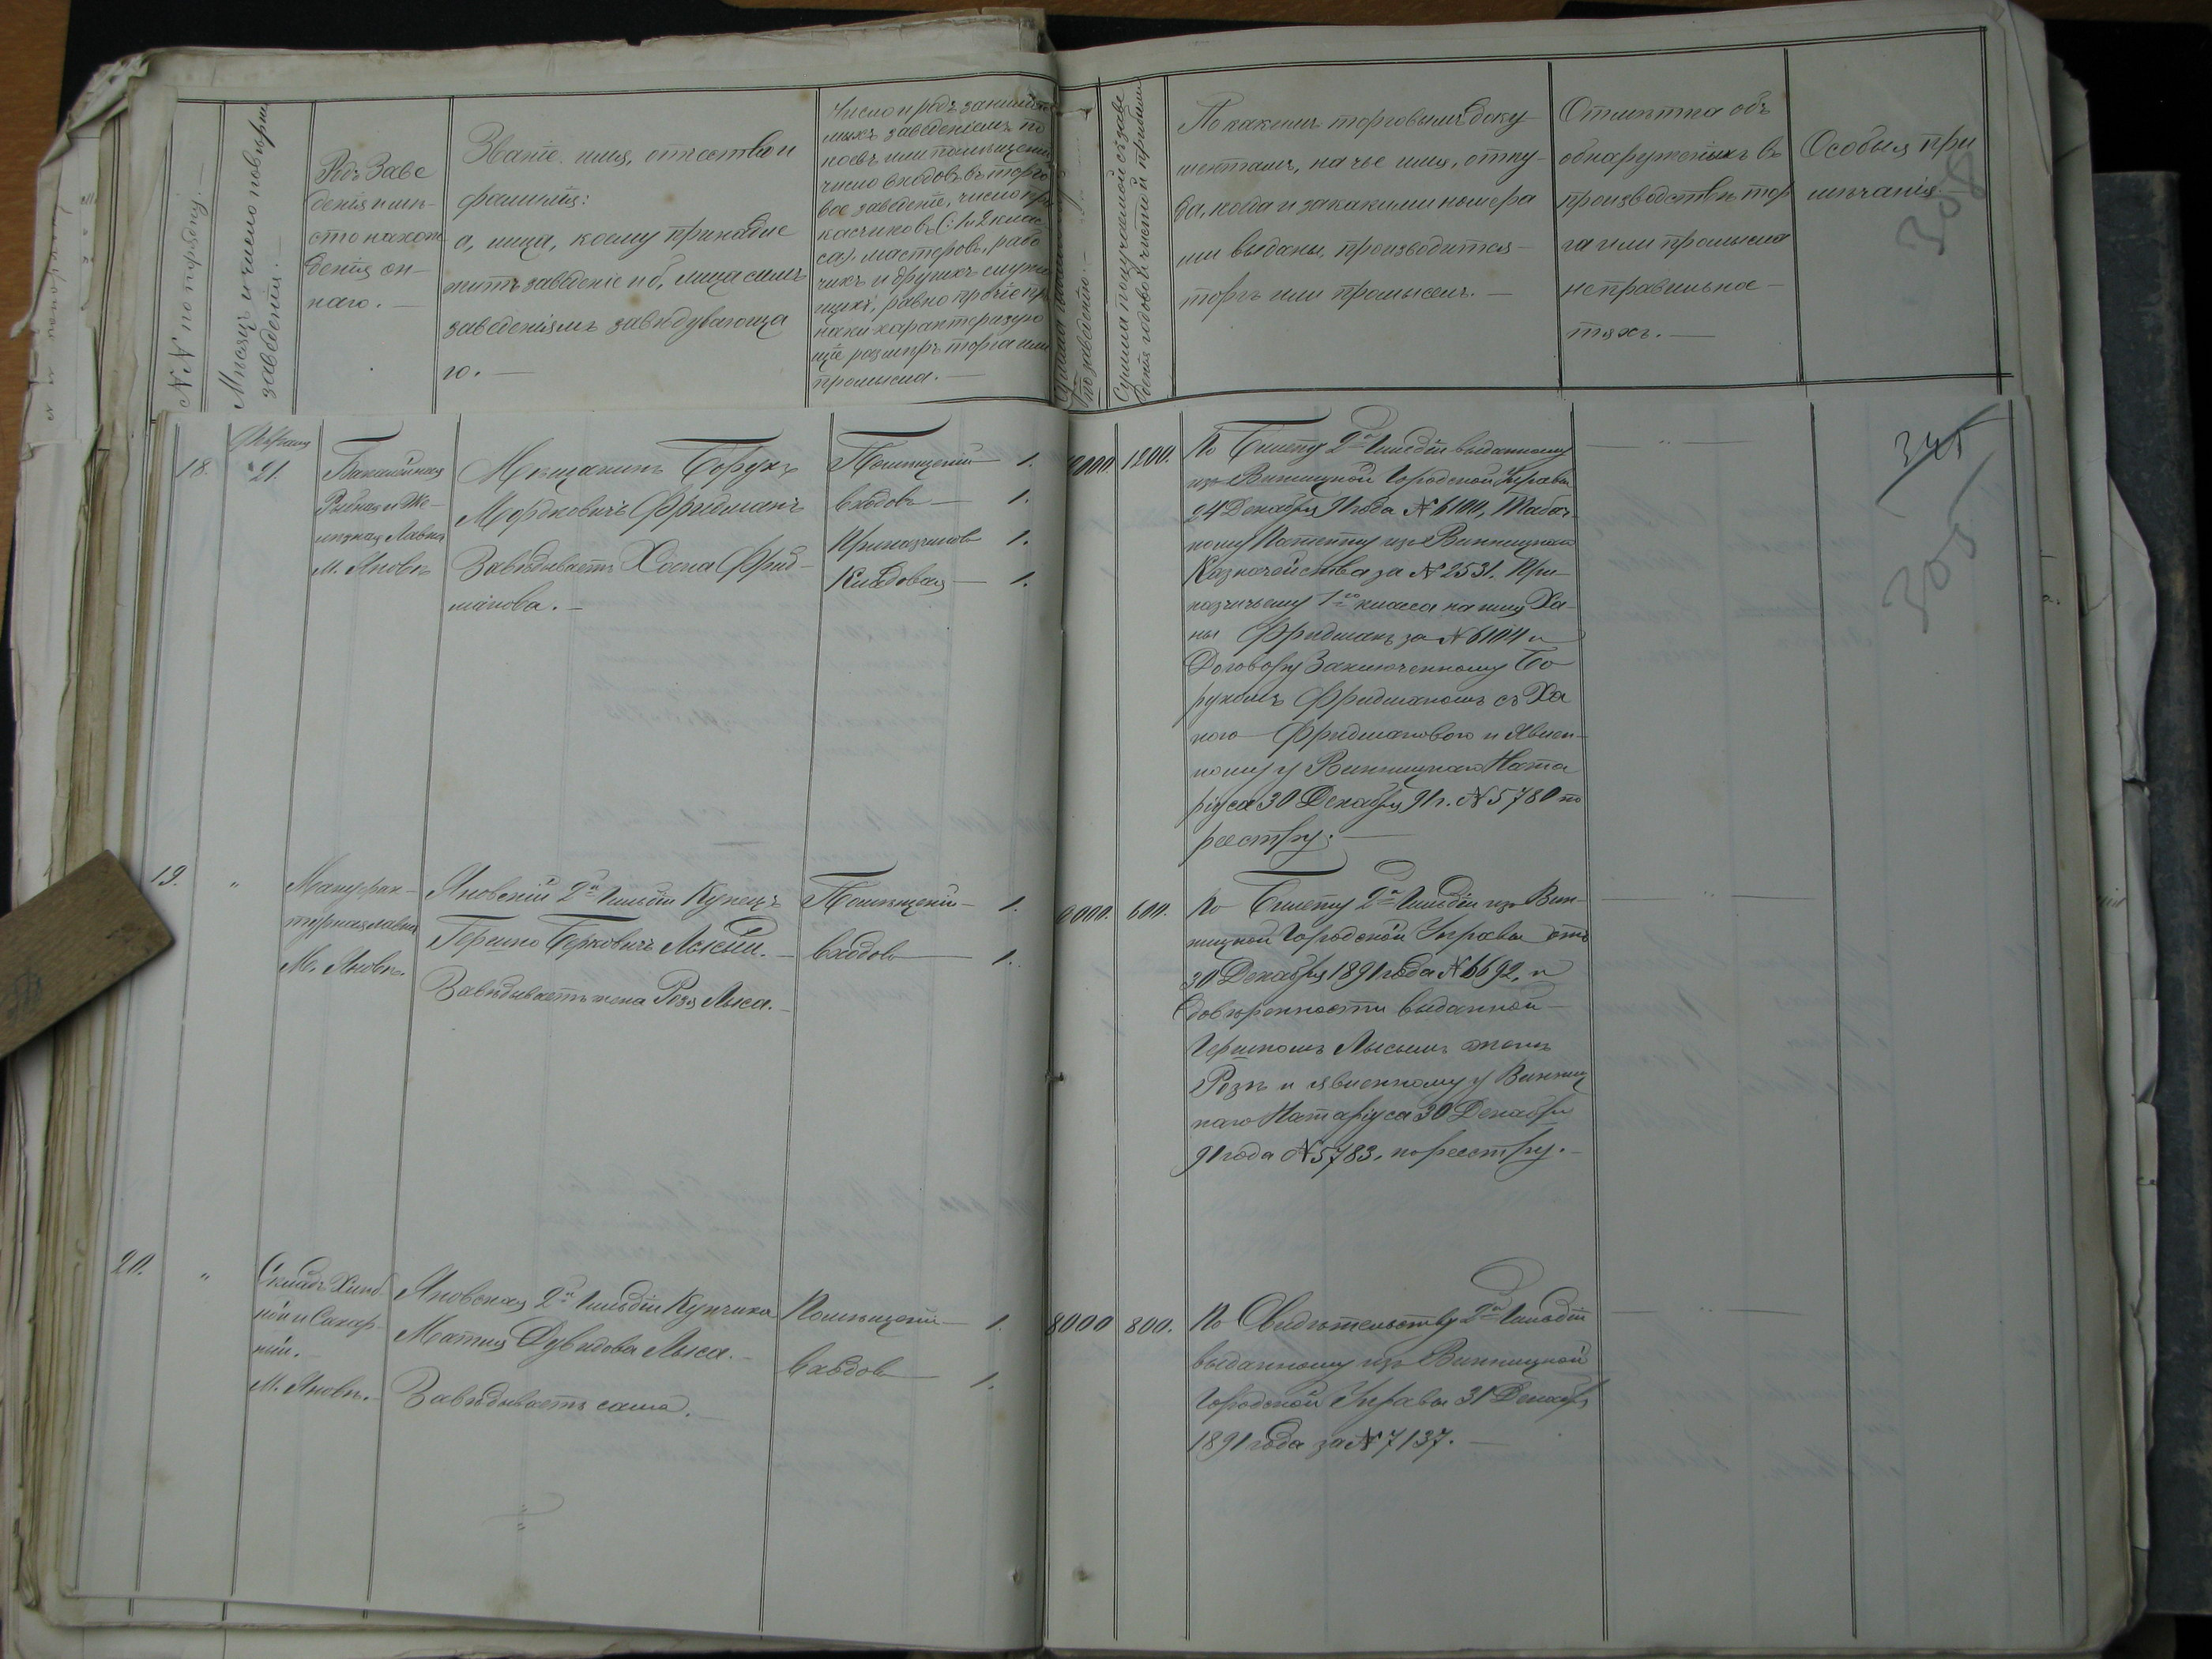 №№ по порядку.
Мѣсяцъ и число повѣрки
заведенія.
Родъ Заве
денія и мѣ-
сто нахож
денія он-
наго.
Званіе, имя, отчество и
фамилія:
а, лица, коему принадле
житъ заведеніе и б, лица симъ
заведеніемъ завѣдующа
го.
Число и родъ занимае
мыхъ заведеніемъ по
коевъ, или помѣщеній
число входовъ въ торго
вое заведеніе, число при
касчиковъ (1 и 2 клас
са), мастеровъ, рабо
чихъ и другихъ служа
щихъ, равно прочіе при
знаки характеризую
щіе размѣръ торга или
промысла.
по заведенію.
Сумма получаемой съ заве
денія годовой чистой прибыли
По какимъ торговымъ доку
ментамъ, на чье имя, отку-
да, когда и за какими номера
ми выданы, производится
торгъ или промыселъ.
Отмѣтка объ
обнаруженыхъ въ
производствѣ тор
га или промысла
неправильнос
тяхъ.
Особыя при
мѣчанія.
308
345
305
18.
Февраля
21.
Бакалѣйная
Рыбная и Же-
лѣзная Лавка
М. Яновъ
Мѣщанинъ Борухъ
Мордковичъ Фридманъ
Завѣдываетъ Хана Фрид-
манова.
Помѣщеній 1.
входовъ 1.
Приказчиковъ 1.
Кладовая 1.
12000. 1200.
По Билету 2й Гильдіи выданному
изъ Винницкой Городской Управы
24 Декабря 91 года № 6100, Табач-
ному Патенту изъ Винницкаго
Казначейства за № 2531. При-
казчичьему 1го класса на имя Ха-
ны Фридманъ за № 6104 и
Договору Заключенному Бо
рухомъ Фридманомъ съ Ха
ною Фридмановою и Явлен-
ному у Винницкаго Ната
ріуса 30 Декабря 91 г. № 5780 по
реестру.
19.
"
Мануфак-
турная лавка
М. Яновъ.
Яновскій 2й Гильдіи Купецъ
Гершко Берковичъ Лысый.
Завѣдываетъ жена Розя Лыса.
Помѣщеній 1.
входовъ 1.
6000. 600.
По Билету 2й Гильдіи изъ Вин-
ницкой Городской Управы отъ
30 Декабря 1891 года № 6692, и
довѣренности выданной
Гершкомъ Лысымъ женѣ
Розѣ и явленному у Винниц
каго Натаріуса 30 Декабря
91 года № 5783. по реестру.
20.
"
Складъ Хлѣб
ной и Сахар-
ный.
М. Яновъ.
Яновская 2й Гильдіи Купчиха
Матля Дувидова Лыса.
Завѣдываетъ сама.
Помѣщеній 1.
входовъ 1.
8000 800.
По Свидѣтельству 2й Гильдіи
выданному изъ Винницкой
Городской Управы 31 Декабря
1891 года за № 7137.